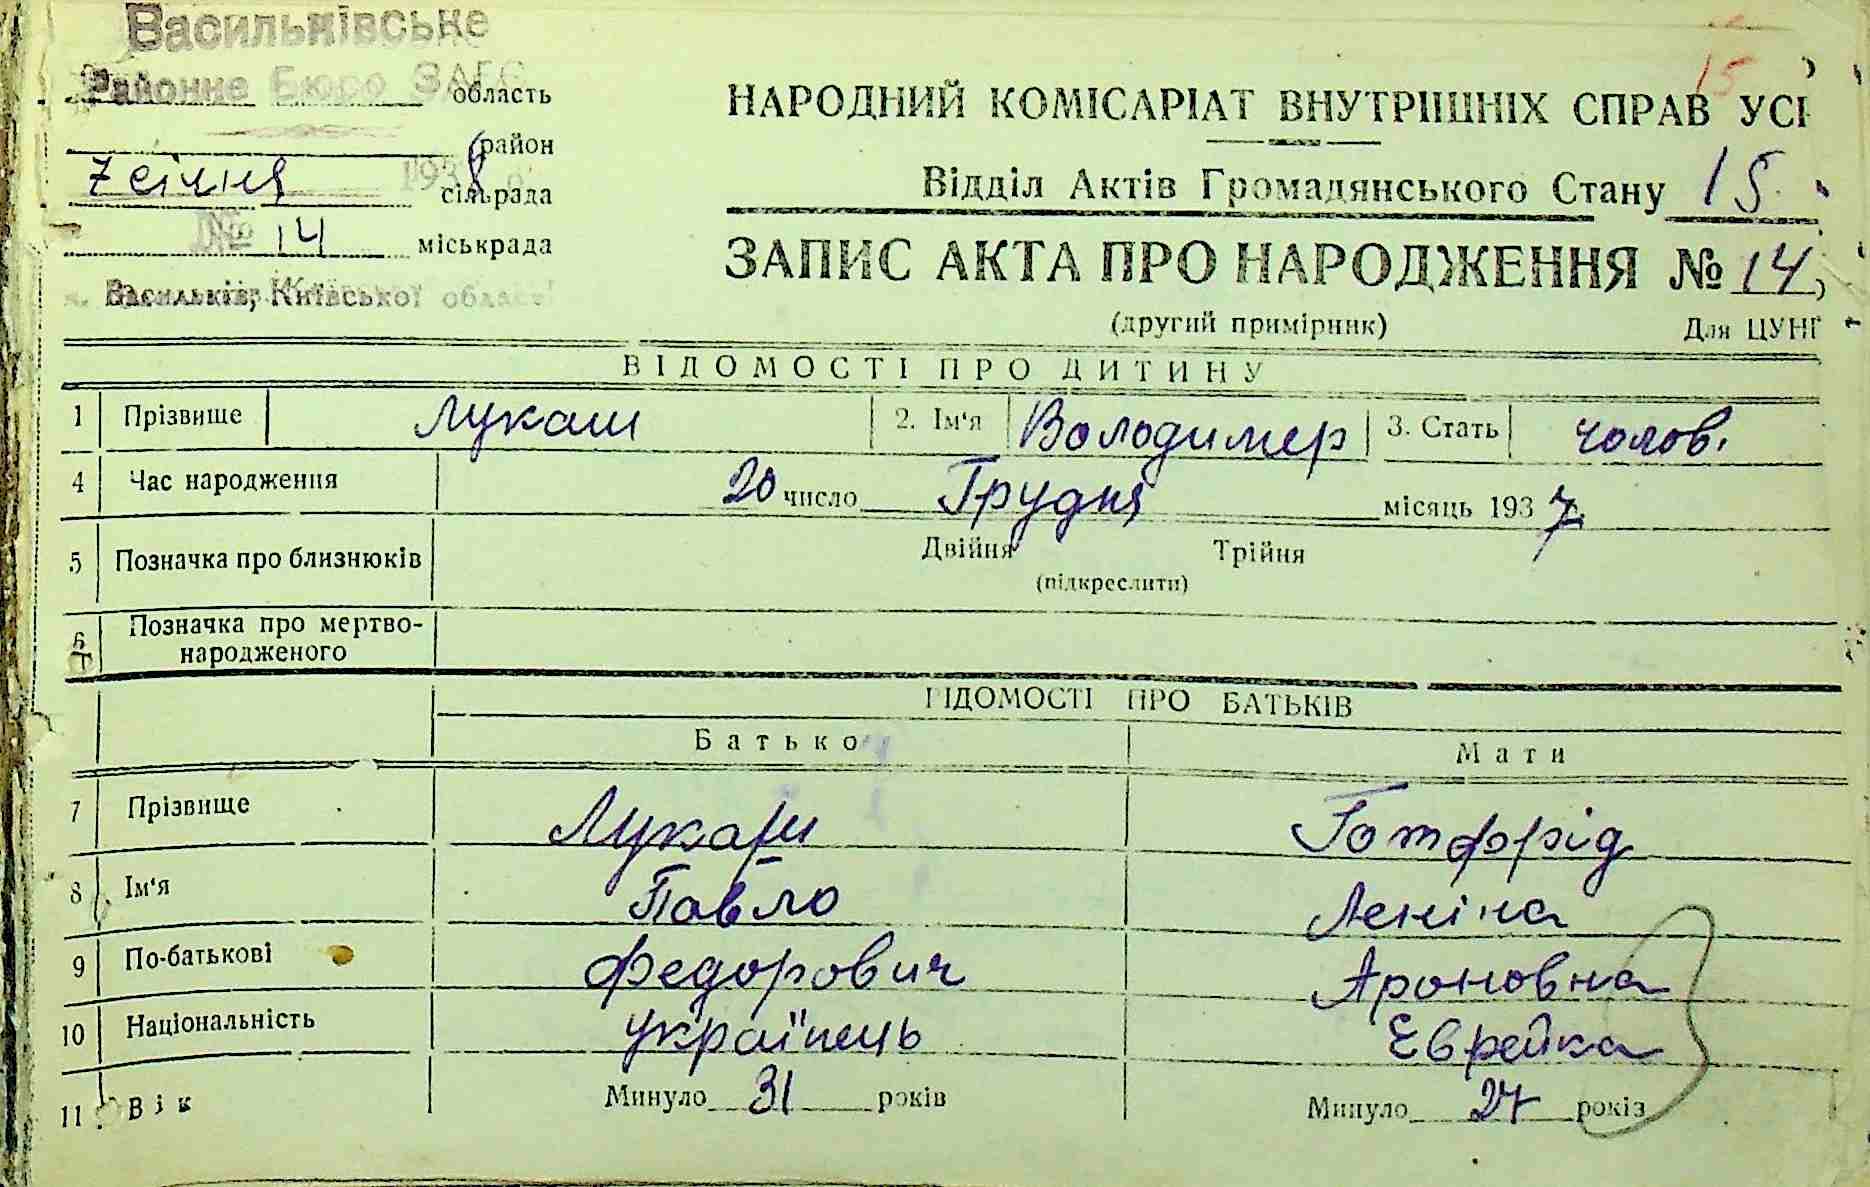 Васильківське
Районне Бюро ЗАГС
область
район
7 січня 1938 р.
сільрада
№ 14 міськрада
м. Васильків, Київської області
15
НАРОДНИЙ КОМІСАРІАТ ВНУТРІШНІХ СПРАВ УС
Відділ Актів Громадянського Стану 15
ЗАПИС АКТА ПРО НАРОДЖЕННЯ № 14
(другий примірник) Для ЦУНГ
ВІДОМОСТІ ПРО ДИТИНУ
1 Прізвище Лукаш 2. Ім'я Володимер 3. Стать чолов.
4 Час народження 20 число Грудня місяць 1937
5 Позначка про близнюків Двійня Трійня
(підкреслити)
6 Позначка про мертво-
народженого
ВІДОМОСТІ ПРО БАТЬКІВ
Батько Мати
7 Прізвище Лукаш Готфрід
8 Ім'я Павло Леніна
9 По-батькові Федорович Ароновна
10 Національність українець Еврейка
11 Вік Минуло 31 років Минуло 27 років